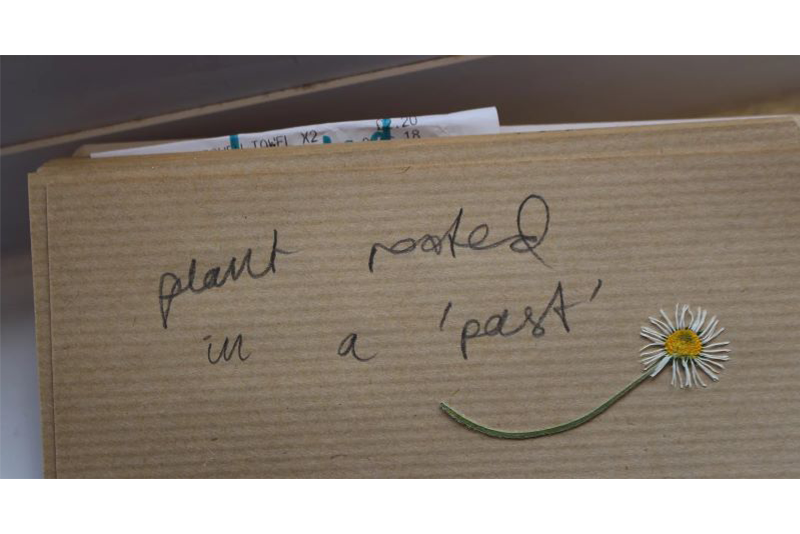 TOWEL X2
.20
18
plant rooted
in a 'past'